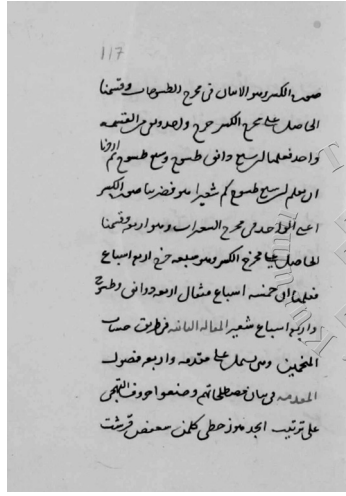 117
صورة الكسر وهو الاثنان فى مخرج الطسوجات وقسمنا
الحاصل على مخرج الكسر خرج واحد وبقى من القسمة
واحد فعلمنا ان سبع دانق طسوج وسبع طسوج ثم اردنا
ان نعلم ان سبع طسوج كم شعيرا هو فضربنا صورة الكسر
اعنى الواحد فى مخرج الشعيرات وهو اربعة وقسمنا
الحاصل على مخرج الكسر وهو سبعة خرج اربعة اسباع
فعلمنا ان خمسة اسباع مثقال اربعة دوانق وطسوج
واربعة اسباع شعير المقالة الثانية فى طريق حساب
المنجمين وهى تشتمل على مقدمة واربعة فصول
المقدمة فى بيان مصطلحاتهم وضعوا حروف التهجى
على ترتيب ابجد هوز حطى كلمن سعفص قرشت